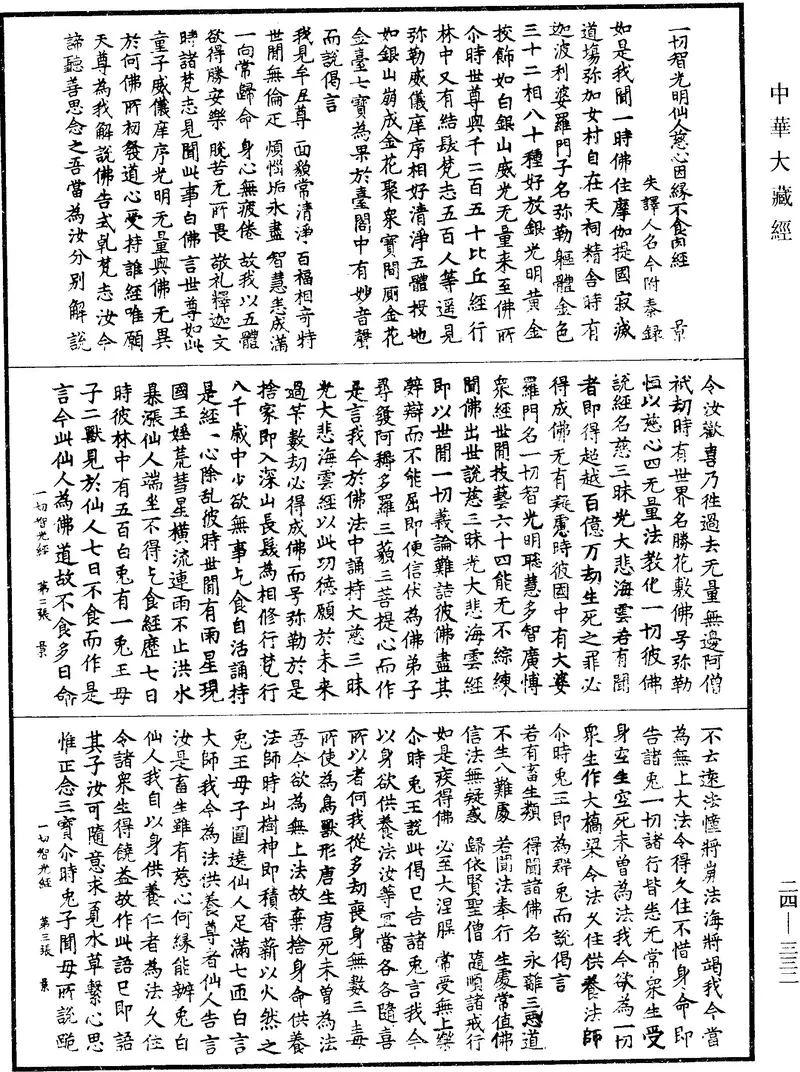 中華大藏經
一切智光明仙人慈心因緣不食肉經　景
失譯人名今附秦録
如是我聞一時佛住摩伽提國寂滅
道場弥加女村自在天祠精舍時有
迦波利婆羅門子名弥勒軀體金色
三十二相八十種好放銀光明黃金
挍飾如白銀山威光无量来至佛所
尒時世尊與千二百五十比丘經行
林中又有結髮梵志五百人等遥見
弥勒威儀庠序相好清淨五體投地
如銀山崩成金花聚衆寶間廁金花
金臺七寶為果於臺閣中有妙音聲
而說偈言
我見牟尼尊　面貌常清淨　百福相奇特
世間無倫疋　煩惱垢永盡　智慧悉成滿
一向常歸命　身心無疲倦　故我以五體
欲得勝安樂　脫苦无所畏　敬礼釋迦文
時諸梵志見聞此事白佛言世尊如此
童子威儀庠序光明无量與佛无異
於何佛所初發道心受持誰經唯願
天尊為我解說佛告式乹梵志汝今
諦聽善思念之吾當為汝分別解說
令汝歡喜乃徃過去无量無邊阿僧
祇劫時有世界名勝花敷佛号弥勒
恒以慈心四无量法教化一切彼佛
說經名慈三昧光大悲海雲若有聞
者即得超越百億万劫生死之罪必
得成佛无有疑慮時彼國中有大婆
羅門名一切智光明聦慧多智廣愽
衆經世間技藝六十四能无不綜練
聞佛出世說慈三昧光大悲海雲經
即以世間一切義論難詰彼佛盡其
辝辯而不能屈即便信伏為佛弟子
尋發阿耨多羅三藐三菩提心而作
是言我今於佛法中誦持大慈三昧
光大悲海雲經以此功德願於未来
過筭數劫必得成佛而号弥勒於是
捨家即入深山長髮為相修行梵行
八千歲中少欲無事乞食自活誦持
是經一心除乱彼時世間有兩星現
國王婬荒彗星橫流連雨不止洪水
暴漲仙人端坐不得乞食經歷七日
時彼林中有五百白兎有一兎王母
子二獸見於仙人七日不食而作是
言今此仙人為佛道故不食多日命
一切智光經　第二張　景
不云遠法幢將崩法海將竭我今當
為無上大法令得久住不惜身命即
告諸兎一切諸行皆悉无常衆生受
身空生空死未曽為法我今欲為一切
衆生作大橋梁令法久住供養法師
尒時兎王即為群兎而說偈言
若有畜生類　得聞諸佛名　永離三惡道
不生八難處　若聞法奉行　生處常值佛
信法無疑惑　歸依賢聖僧　隨順諸戒行
如是疾得佛　必至大涅槃　常受無上樂
尒時兎王說此偈已告諸兎言我今
以身欲供養法汝等冝當各各隨喜
所以者何我從多劫喪身無數三毒
所使為鳥獸形唐生唐死未曽為法
吾今欲為無上法故棄捨身命供養
法師時山樹神即積香薪以火然之
兎王母子圍遶仙人足滿七迊白言
大師我今為法供養尊者仙人告言
汝是畜生雖有慈心何緣能辦兎白
仙人我自以身供養仁者為法久住
令諸衆生得饒益故作此語已即語
其子汝可隨意求覓水草繫心思
惟正念三寶尒時兎子聞母所說跪
一切智光經　第三張　景
二四—三三二